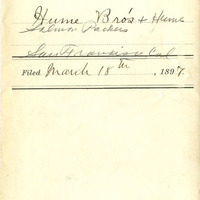 Hume Bro's & Hume
Salmon Packers
San Francisco Cal
Filed March 18th, 1897.